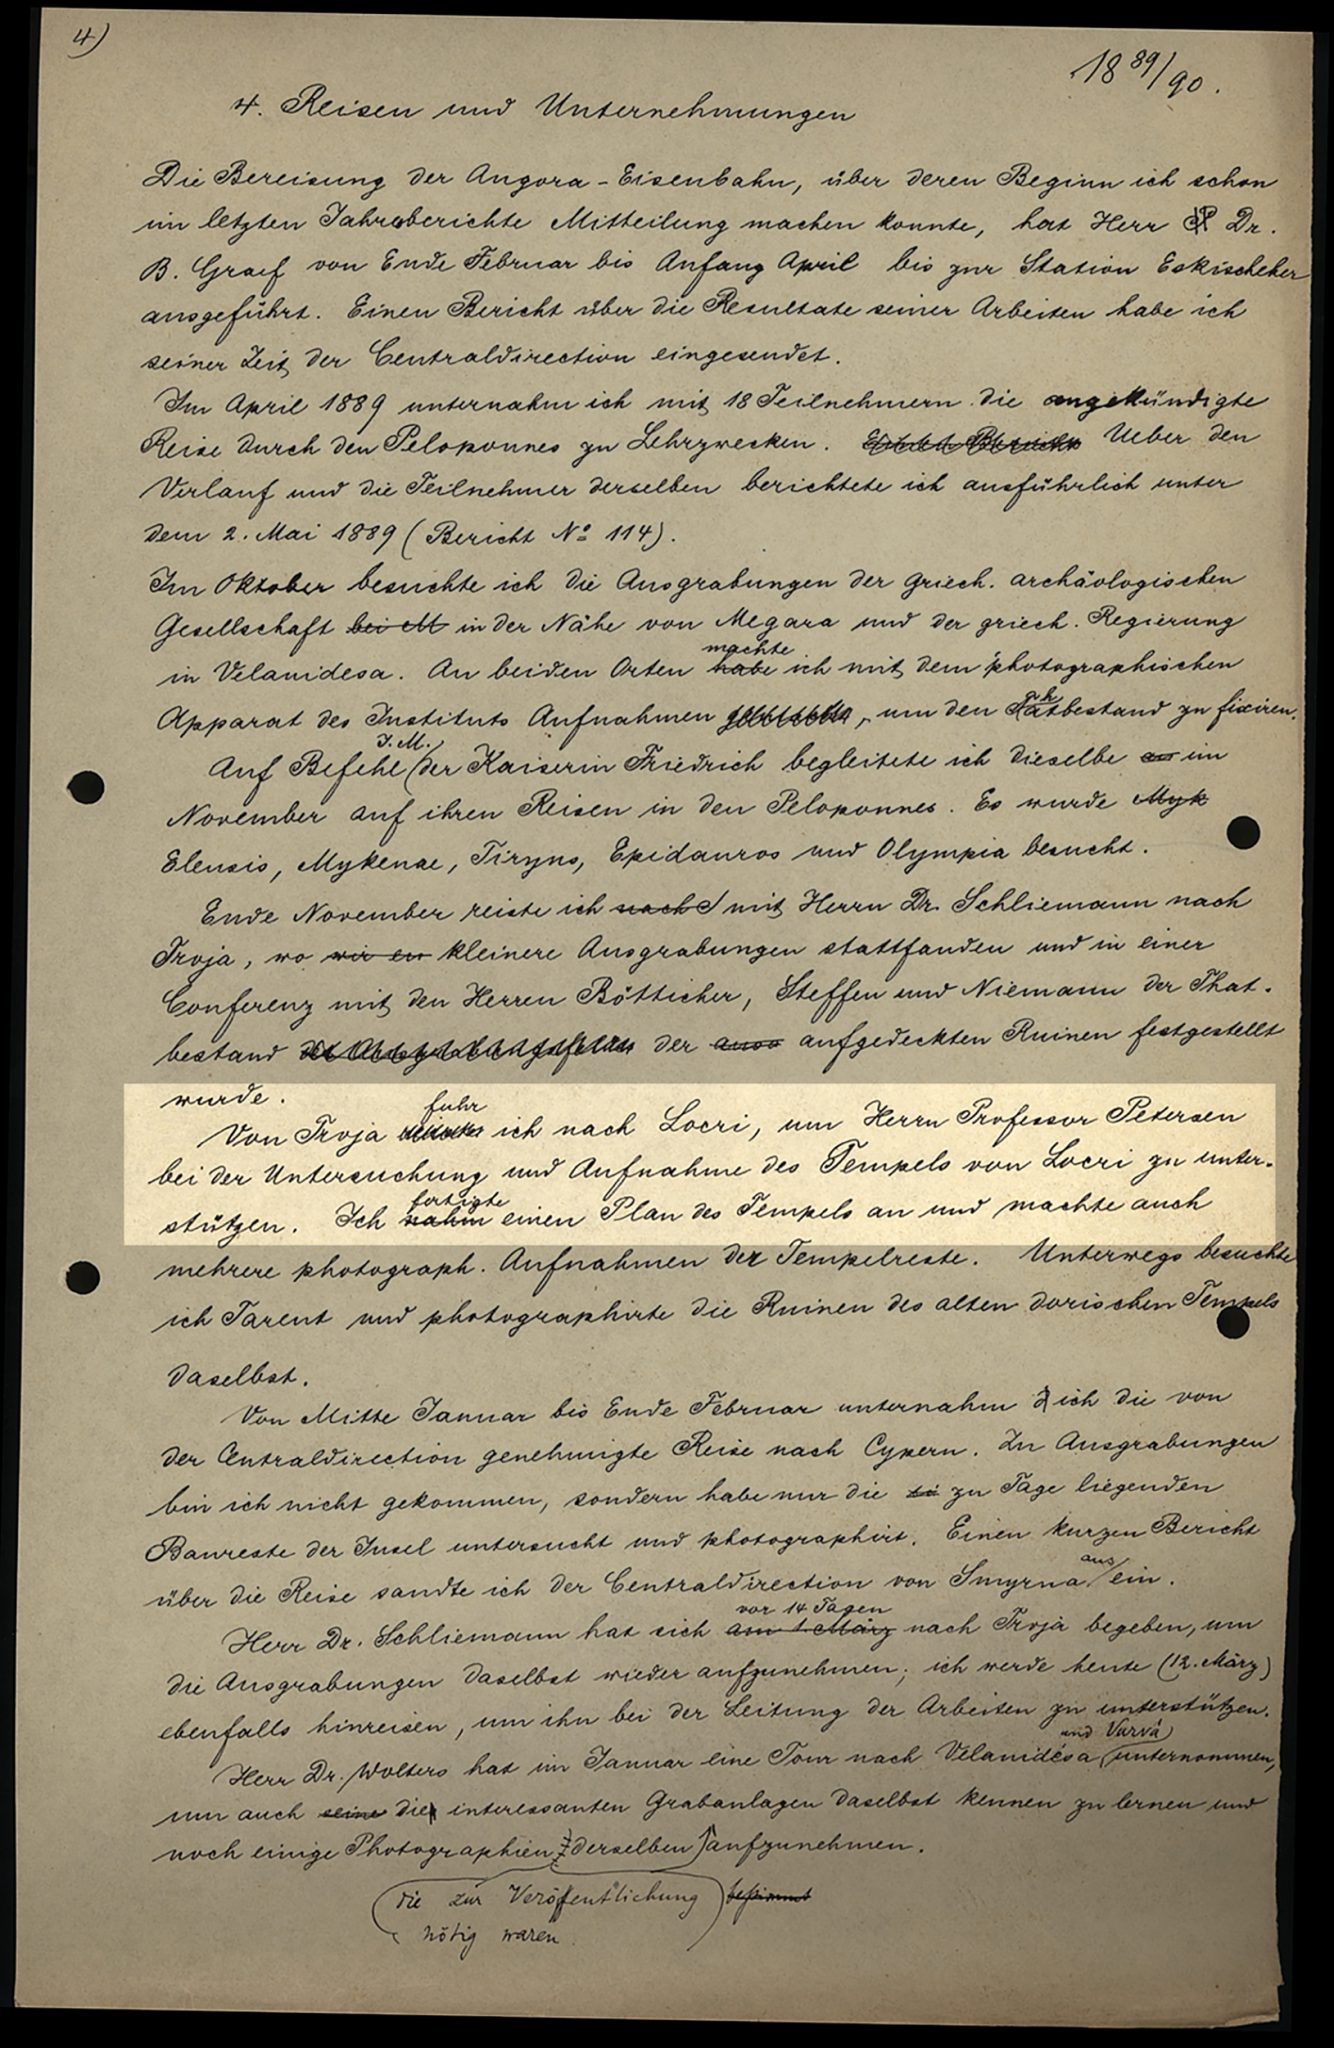 4)
18 89/90.
4. Reisen und Unternehmungen
Die Bereisung der Angora-Eisenbahn, über deren Beginn ich schon
im letzten Jahresberichte Mitteilung machen konnte, hat Herr Dr.
B. Graef von Ende Februar bis Anfang April bis zur Station Eskischeher
ausgeführt. Einen Bericht über die Resultate seiner Arbeiten habe ich
seiner Zeit der Centraldirection eingesendet.
Im April 1889 unternahm ich mit 18 Teilnehmern die angekündigte
Reise durch den Peloponnes zu Lehrzwecken. Einen Bericht Ueber den
Verlauf und die Teilnehmer derselben berichtete ich ausführlich unter
dem 2. Mai 1889 (Bericht No 114).
Im Oktober besuchte ich die Ausgrabungen der griech. archäologischen
Gesellschaft bei M in der Nähe von Megara und der griech. Regierung
machte
in Velanidesa. An beiden Orten habe ich mit dem photographischen
h
Apparat des Instituts Aufnahmen, um den Tatbestand zu fixiren.
I. M.
Auf Befehl der Kaiserin Friedrich begleitete ich dieselbe an im
November auf ihren Reisen in den Peloponnes. Es wurde Myk
Eleusis, Mykenae, Tiryns, Epidauros und Olympia besucht.
Ende November reiste ich nach S mit Herrn Dr. Schliemann nach
Troja, wo wir en kleinere Ausgrabungen stattfanden und in einer
Conferenz mit den Herren Bötticher, Steffen und Niemann der That-
bestand der auso aufgedeckten Ruinen festgestellt
wurde.
fuhr
Von Troja ich nach Locri, um Herrn Professor Petersen
bei der Untersuchung und Aufnahme des Tempels von Locri zu unter-
fertigte
stützen. Ich nahm einen Plan des Tempels an und machte auch
mehrere photograph. Aufnahmen der Tempelreste. Unterwegs besuchte
ich Tarent und photographirte die Ruinen des alten dorischen Tempels
daselbst.
Von Mitte Januar bis Ende Februar unternahm ich die von
der Centraldirection genehmigte Reise nach Cypern. Zu Ausgrabungen
bin ich nicht gekommen, sondern habe nur die zu Tage liegenden
Baureste der Insel untersucht und photographirt. Einen kurzen Bericht
aus
über die Reise sandte ich der Centraldirection von Smyrna ein.
vor 14 Tagen
Herr Dr. Schliemann hat sich am 1. März nach Troja begeben, um
die Ausgrabungen daselbst wieder aufzunehmen; ich werde heute (12. März)
ebenfalls hinreisen, um ihn bei der Leitung der Arbeiten zu unterstützen.
und Vurvá
Herr Dr. Wolters hat im Januar eine Tour nach Velanidésa unternommen,
um auch seine die interessanten Grabanlagen daselbst kennen zu lernen und
noch einige Photographien derselben aufzunehmen.
die zur Veröffentlichung bestimmt
nötig waren